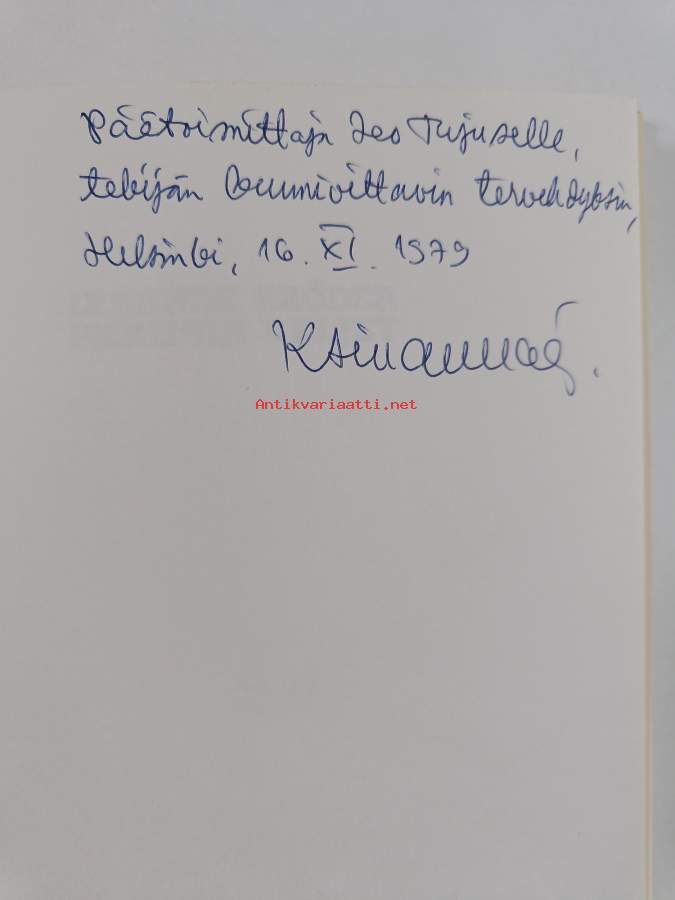 Päätoimittaja Leo Tujuselle,
tekijän kunnioittavin tervehdyksin,
Helsinki, 16. XI. 1979
Antikvariaatti.net